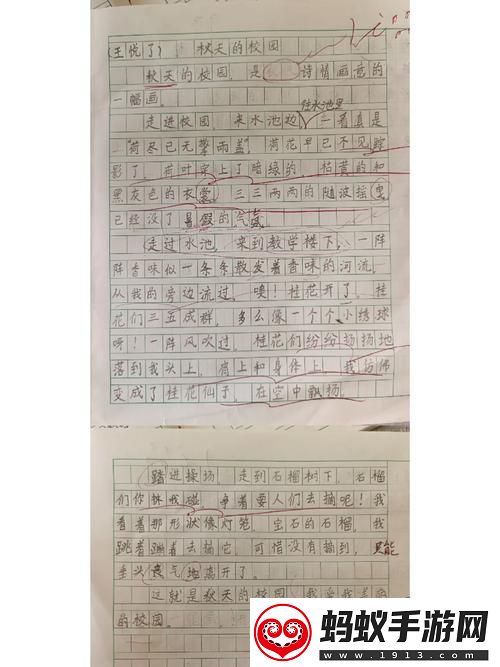 (王悦了) 秋天的校园
秋天的校园，是诗情画意的
一幅画。
往水池里
走进校园，来水池边，一看真是
“荷尽已无擎雨盖”，荷花早已不见踪
影了，荷叶穿上了暗绿的、枯黄的和
黑灰色的衣裳，三三两两的随波摇曳，
已经没了暑假的气
走过水池，来到教学楼下，一阵
阵香味似一条条散发着香味的河流，
从我的旁边流过。噢！桂花开了。桂
花们三五成群，多么像一个个小绣球
呀！一阵风吹过，桂花们纷纷扬扬地
落到我头上，肩上和身体上，我仿佛
变成了桂花仙子，在空中飘扬。
踏进操场，走到石榴树下，石榴
们你挤我碰，争着要人们去摘呢！我
看着那形状像灯笼，宝石的石榴，我
跳着蹦着去摘它，可惜没有摘到，只能
垂头丧气地离开了。
这就是秋天的校园，我爱我
的校园。
蚂蚁手游网
www.1913.com